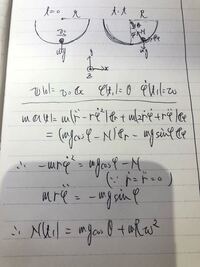 t=0 R t=t R
v₀ θ φ N
mg mg
y
x
z
v(0) = v₀ eₓ φ(t₁)=θ φ̇(t₁)=ω
m a(t) = m(r̈ - rφ̇²)eᵣ + m(2ṙφ̇ + rφ̈)eφ
= (mg cosφ - N)eᵣ - mg sinφ eφ
∴ -mrφ̇² = mg cosφ - N
(∵ ṙ = r̈ = 0)
mrφ̈ = -mg sinφ
∴ N(t₁) = mg cosθ + mRω²